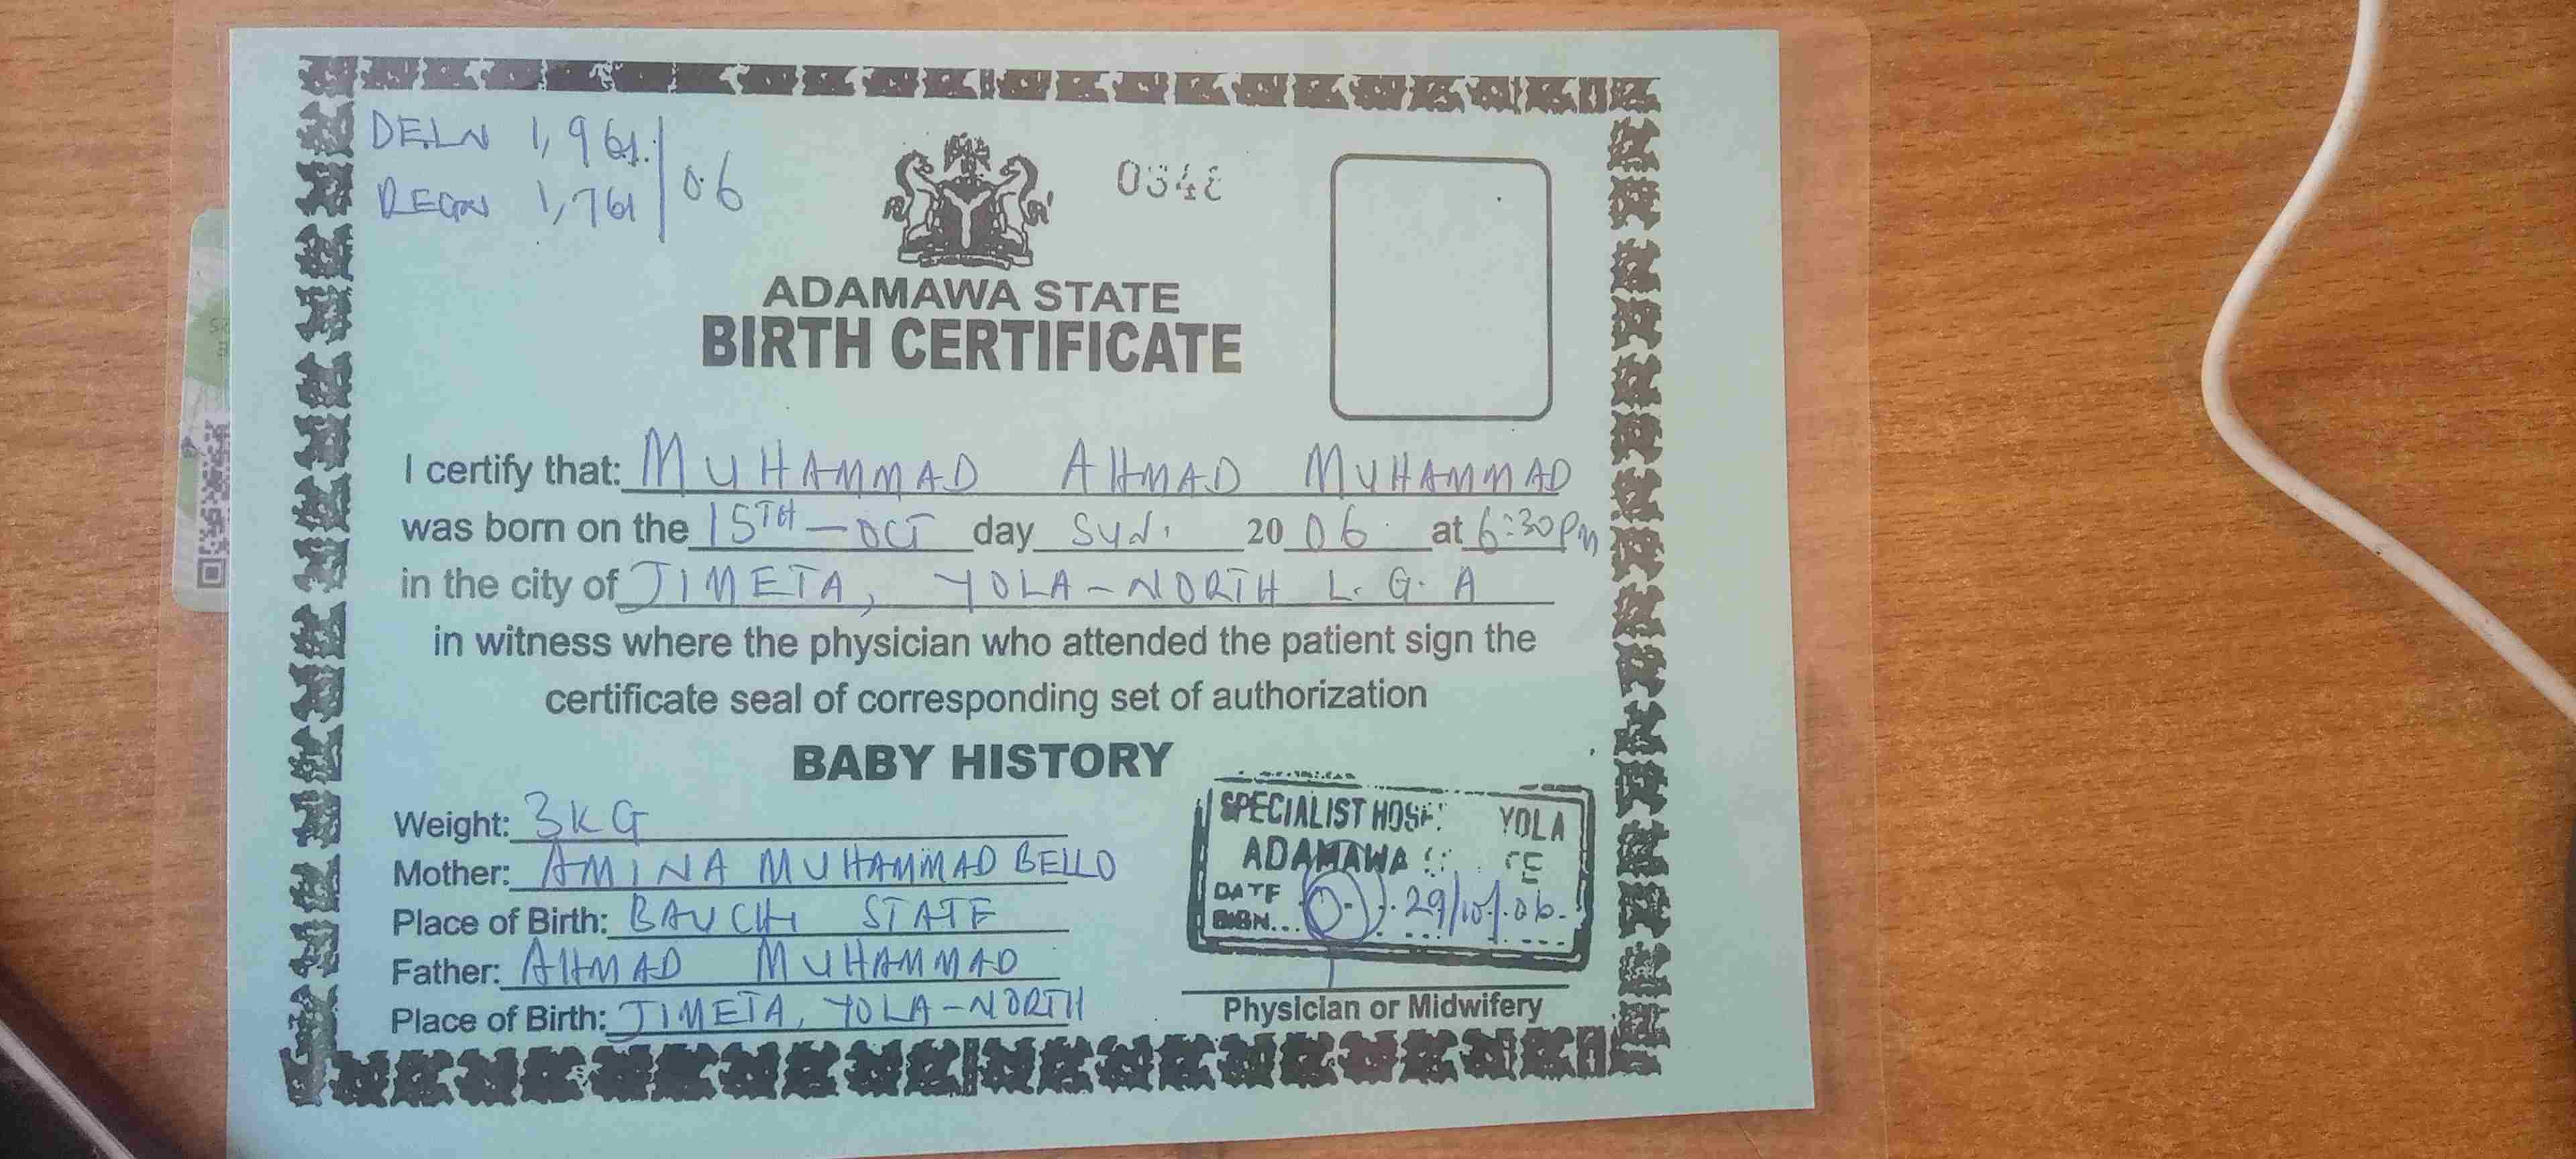 DELN 1,961 /06
REGN 1,761
ADAMAWA STATE
BIRTH CERTIFICATE
I certify that: MUHAMMAD AHMAD MUHAMMAD
was born on the 15TH-OCT day SUN. 20 06 at 6:30PM
in the city of JIMETA, YOLA-NORTH L.G.A
in witness where the physician who attended the patient sign the
certificate seal of corresponding set of authorization
BABY HISTORY
Weight: 3KG
Mother: AMINA MUHAMMAD BELLO
Place of Birth: BAUCHI STATE
Father: AHMAD MUHAMMAD
Place of Birth: JIMETA, YOLA-NORTH
SPECIALIST YOLA
ADAMAWA
DATE
SIGN... 29/10/.06.
Physician or Midwifery